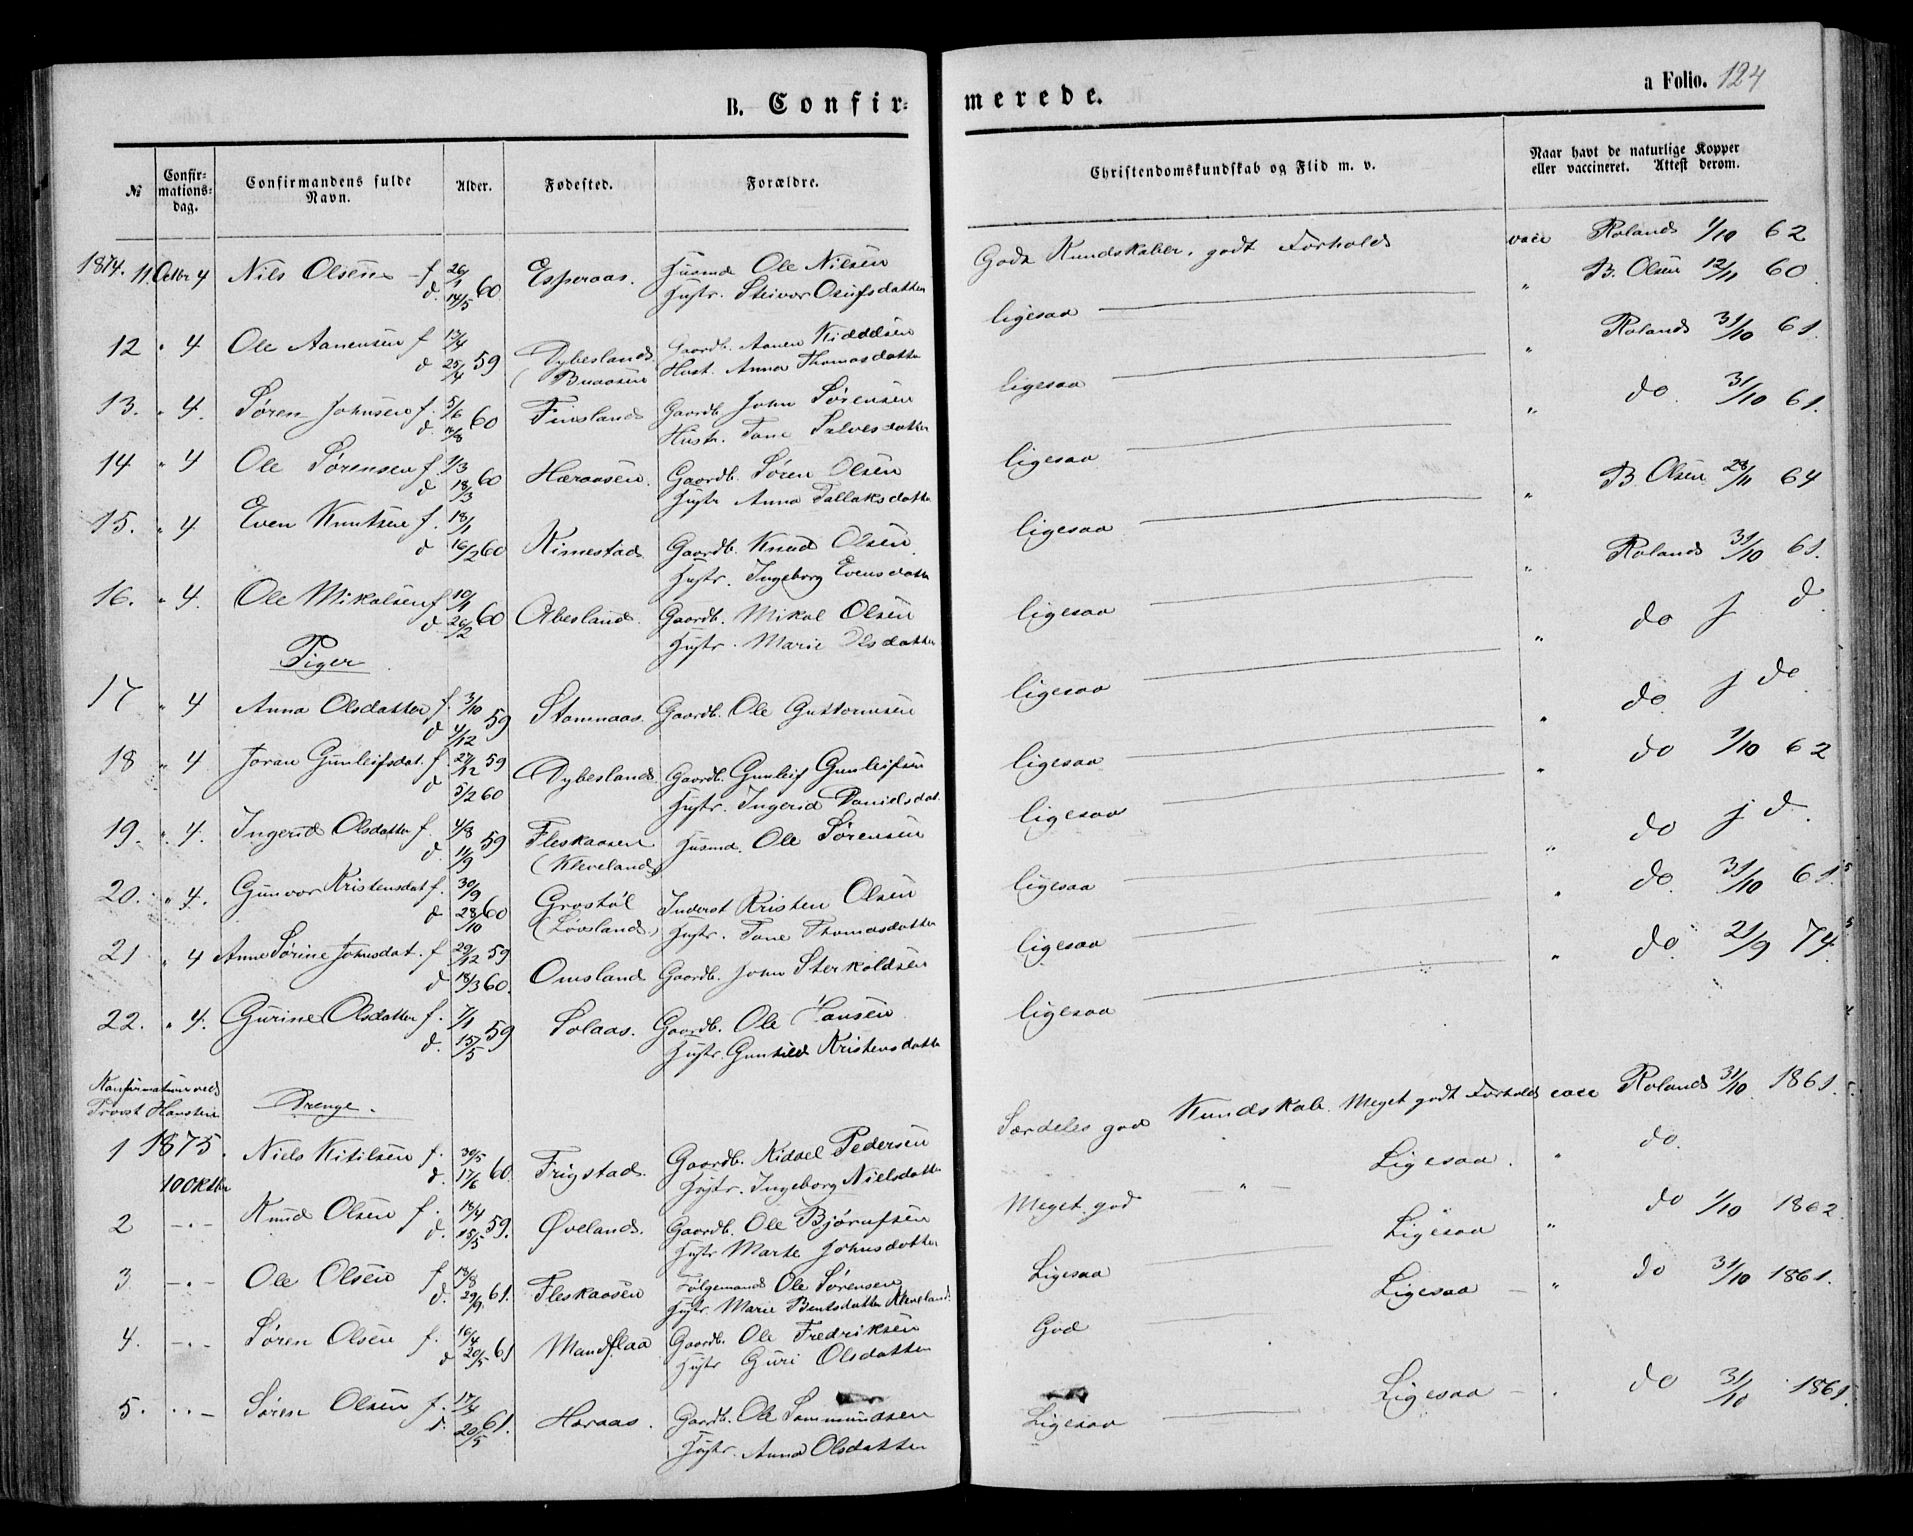 B. Confir- merede.
a Folio. 124
№ Confir-mations-dag. Confirmandens fulde Navn. Alder. Fødested. Forældre. Christendomskundskab og Flid m. v. Naar havt de naturlige Kopper eller vaccineret. Attest derom.
1874. 11. Octbr 4 Nils Olsen f. 26/1 60 Esperaas. Husmd Ole Nilsen Gode Kundskaber, godt Forhold vacc Roland 1/10 62
d. 14/5 Hustr. Steivor Osufsdatter
12 " 4 Ole Aanensen f 13/4 59 Dybesland Gaardb. Aanen Kiddelsen ligesaa " B. Olsen 12/11 60
d 25/4 (Buaasen Hust. Anna Thomasdatter
13. " 4. Søren Johnsen f. 5/6 60 Finsland Gaardb. John Sørensen ligesaa " Roland 31/10 61.
d. Hustr. Tone Salvesdatter
14 " 4 Ole Sørensen f. 1/3 60 Haraasen. Gaardb. Søren Olsen ligesaa " do. 31/10 61.
d 18/3 Hustr Anna Tallaksdatter
15. " 4 Even Knutsen f. 18/1 60 Kimestad. Gaardb. Knud Olsen ligesaa " B Olsen 28/11 64
d 16/2 Hustr. Ingeborg Evensdatter
16. " 4. Ole Mikalsen f 10/1 60 Abesland. Gaardb. Mikal Olsen ligesaa " Roland 31/10 61.
d. 26/2 Hustr. Marie Olsdatter
Piger
17 " 4 Anna Olsdatter f. 3/10 59 Stamnaas. Gaardb. Ole Guttormsen ligesaa " do d.
d 4/12
18 " 4 Joran Gunleifsdat. f. 27/12 59 Dybesland. Gaardb. Gunleif Gunleifsen ligesaa " do. do
d 5/2 60 Hustr. Ingerid Danielsdat.
19. " 4. Ingerid Olsdatter f. 4/8 59 Fleskaasen Husmd. Ole Sørensen ligesaa " do 1/10 62
d. 11/9 (Kleveland)
20. " 4. Gunvor Kristensdat f. 30/9 60 Grostøl Inderst Kristen Olsen ligesaa " do d.
d 28/10 (Løvsland) Hustr. Tone Thomasdatter
21 " 4 Anne Sørine Johnsdat. f 29/12 59 Omsland Gaardb. John Sterkoldsen ligesaa " do. 31/10 61.
d 18/3 60.
22. " 4. Gurine Olsdatter f. 7/1 59 Solaas. Gaardb. Ole Hansen ligesaa " do. 21/9 74.
d. 15/5 Hustr. Gunhild Kristensdatter
Konfirmation ved
Provst Hansteen Drenge.
1 1875. Niels Kitilsen f. 30/5 60. Frigstad. Gaardb. Kiddel Pedersen Særdeles god Kundskab. Meget godt Forhold vacc Roland 31/10 1861.
10 Oktbr d. 17/6 Hustr. Ingeborg Nielsdatter
2 -"- Knud Olsen f. 18/4 59. Øveland. Gaardb. Ole Bjørufsen Meget god -"- Ligesaa. " do.
d. 15/5 Hustr Marte Johnsdatter
3 -"- Ole Olsen f 18/8 61. Fleskaasen Følgemand Ole Sørensen Ligesaa Ligesaa " do 1/10 1862.
d. 29/9 Hustr. Marie Bentsdatter Kleveland.
4. -"- Søren Olsen f. 16/4 61 Mandflaa Gaardb. Ole Fredriksen God Ligesaa - " do 31/10 1861.
d 20/5 Hustr Guri Olsdatter
5. " - Søren Olsen f. 17/4 61. Haraas. Gaardb. Ole Sammundsen Ligesaa Ligesaa - " do 31/10 1861.
d. 20/5 Hustr. Anna Olsdatter